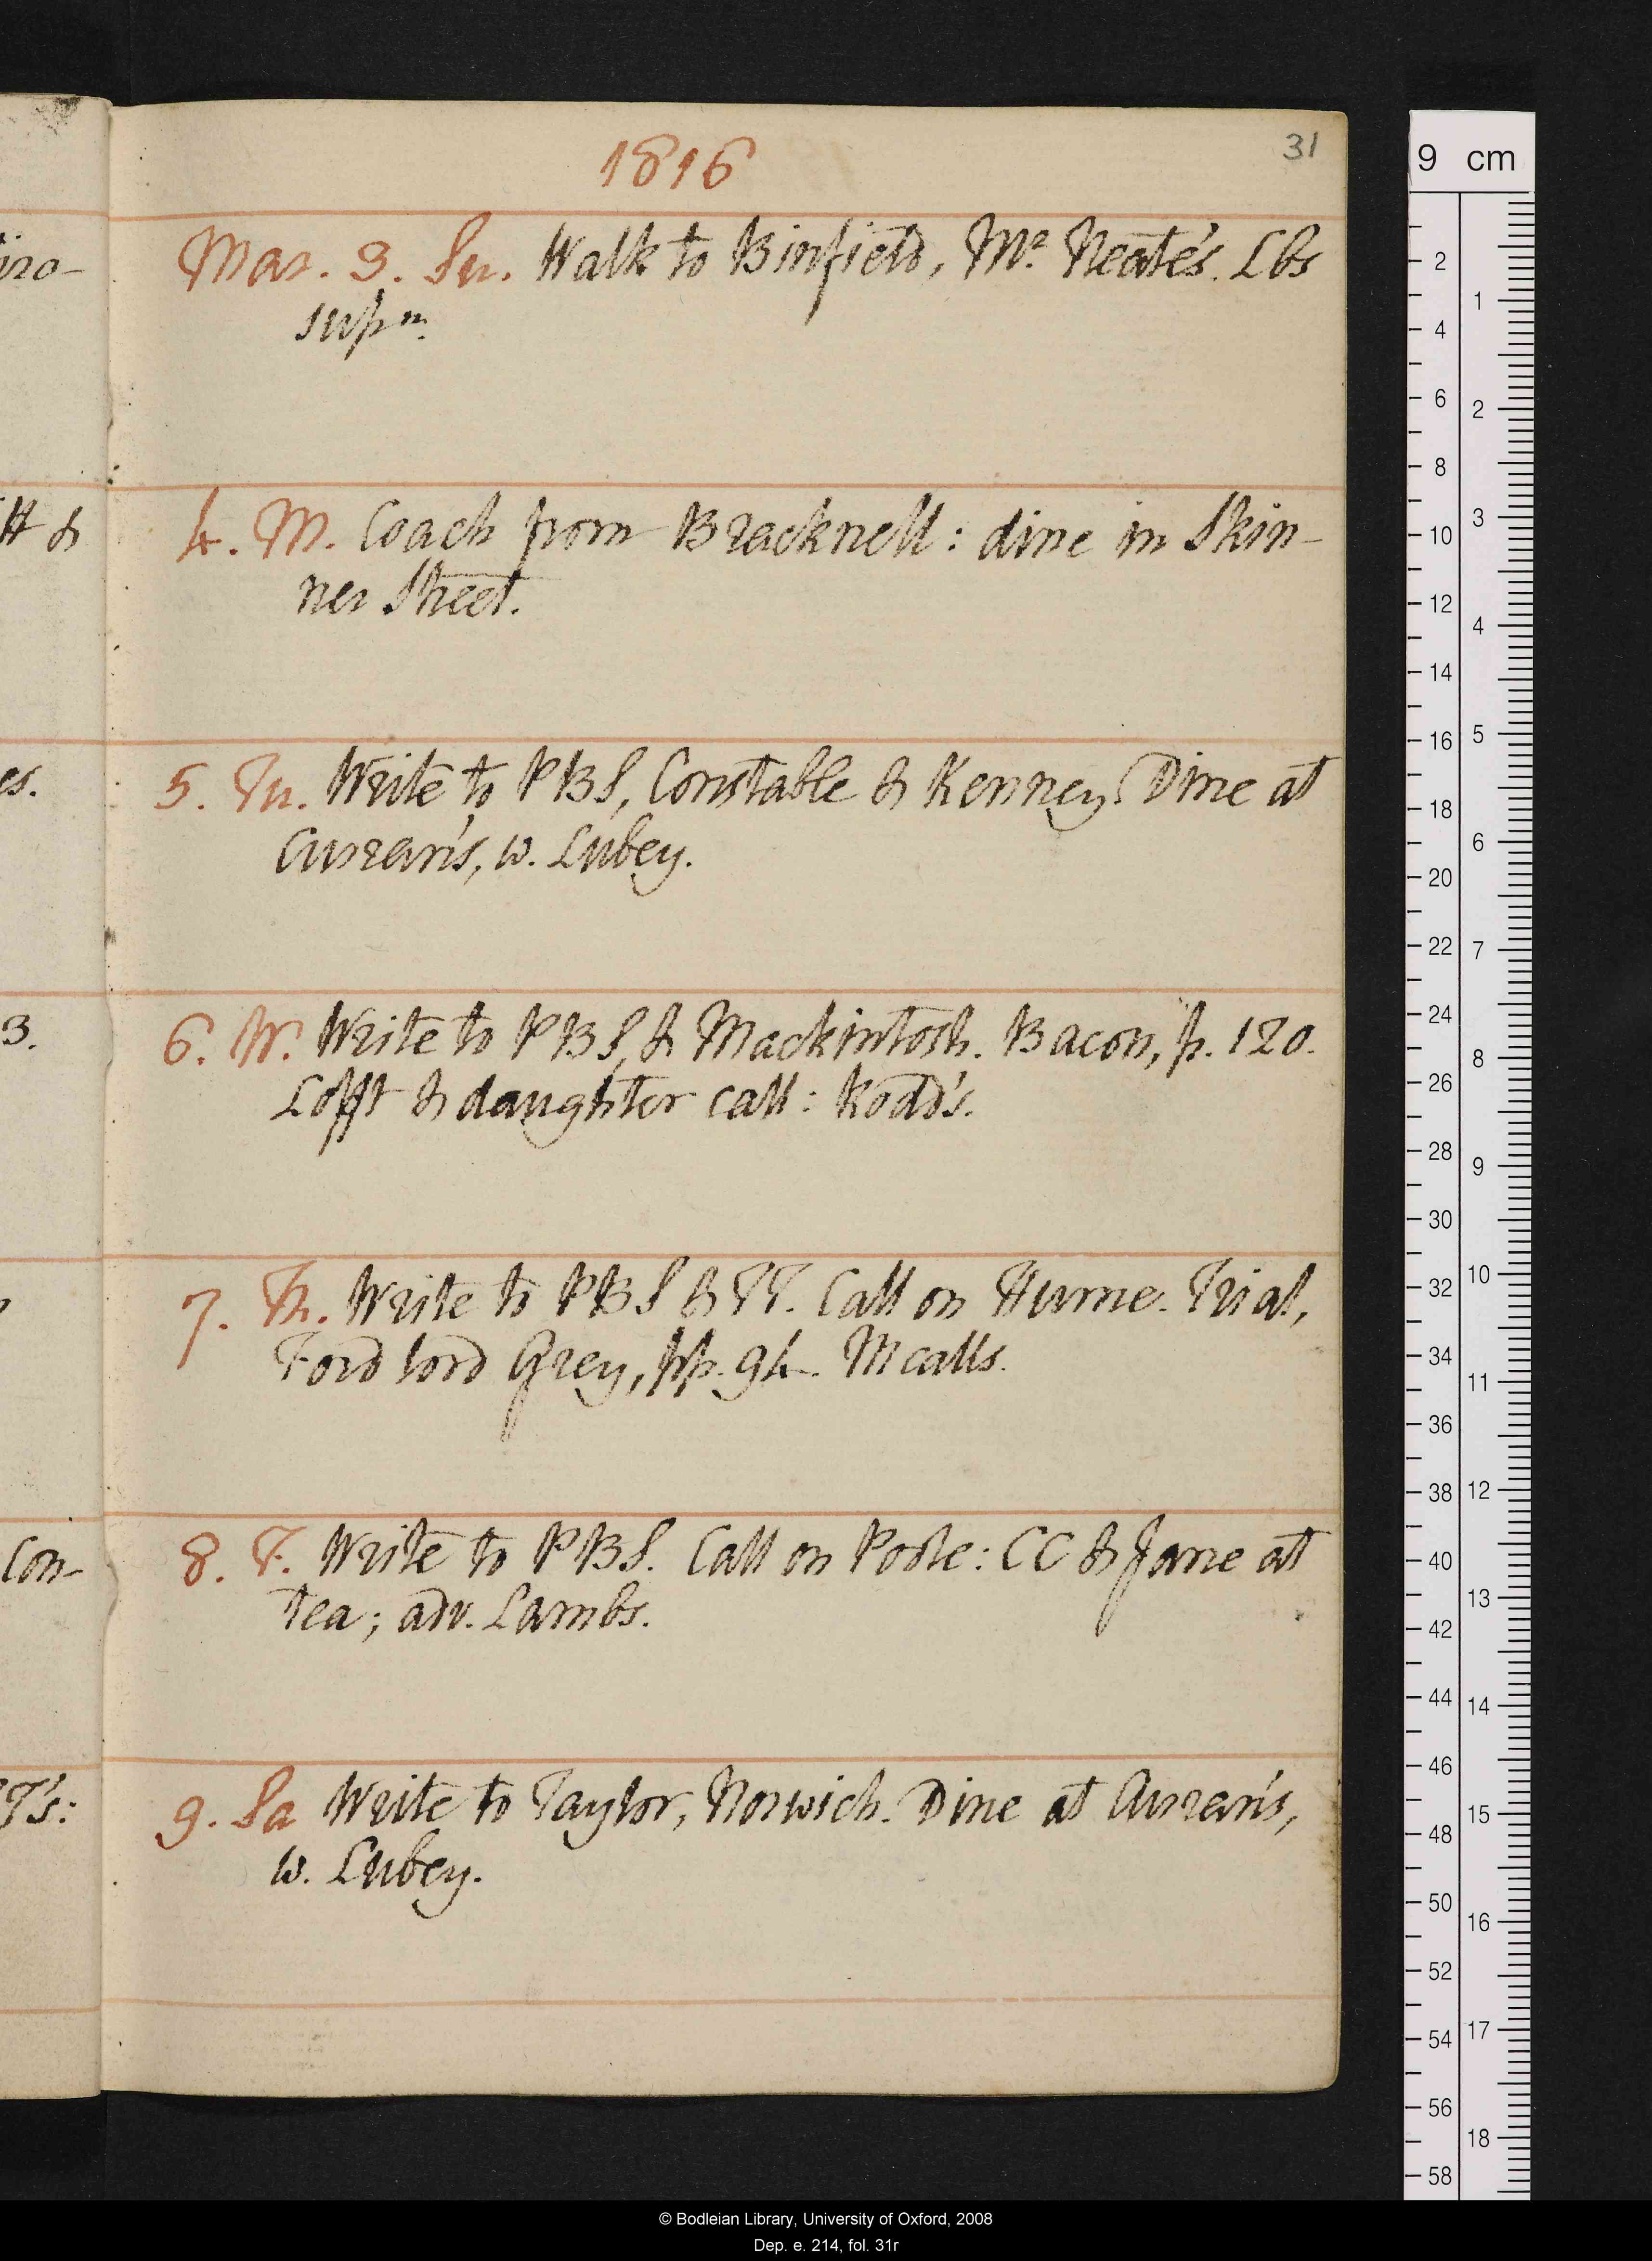 1816
31
Mar. 3. Su. Walk to Binfield, Mr. Neate's. Lbs
supn.
4. M. Coach from Bracknell: dine in Skin-
ner Street.
5. Tu. Write to PBS, Constable & Kenney. Dine at
Curran's, w. Lubey.
6. W. Write to PBS, & Mackintosh. Bacon, p. 120.
Lofft & daughter call: Rodd's.
7. Th. Write to PBS & TT. Call on Hume. Trial,
Ford lord Grey, pp. 94. M calls.
8. F. Write to PBS. Call on Poole: CC & Jane at
tea; adv. Lambs.
9. Sa Write to Taylor, Norwich. Dine at Curran's,
w. Lubey.
iro-
H &
es.
3.
Con-
T's:
9 cm
2
4
6
8
10
12
14
16
18
20
22
24
26
28
30
32
34
36
38
40
42
44
46
48
50
52
54
56
58
1
2
3
4
5
6
7
8
9
10
11
12
13
14
15
16
17
18
© Bodleian Library, University of Oxford, 2008
Dep. e. 214, fol. 31r